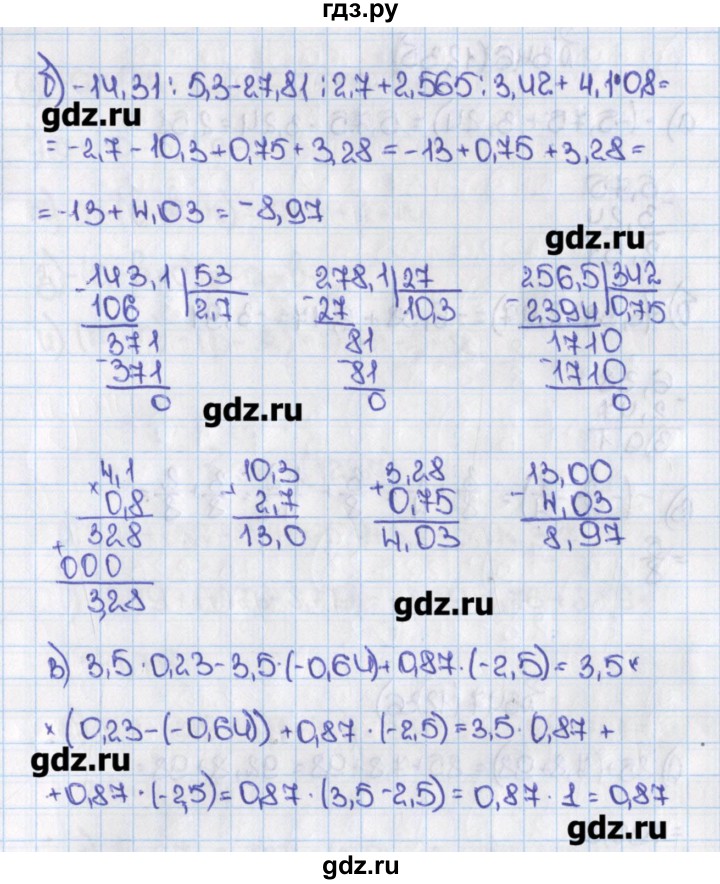 гдз.ру
б) -14,31 : 5,3-27,81 : 2,7+2,565 : 3,42+ 4,1·0,8=
gdz.ru
= -2,7 - 10,3+0,75+ 3,28 = -13+0,75 +3,28 =
= -13+ 4,03 = -8,97
gdz.ru
143,1 53 278,1 27 256,5 342
- 106 2,7 - 27 10,3 - 2394 0,75
371 81 1710
- 371 - 81 - 1710
0 0 0
gdz.ru
4,1 10,3 3,28 13,00
× 0,8 + 2,7 + 0,75 - 4,03
328 13,0 4,03 8,97
+ 000
3,28
gdz.ru
в) 3,5 · 0,23 - 3,5 · (-0,64)+0,87 · (-2,5) = 3,5 ×
× (0,23-(-0,64)) +0,87 · (-2,5) =3,5 · 0,87 +
gdz.ru
+0,87 · (-2,5)= 0,87 · (3,5 -2,5) = 0,87 · 1 = 0,87
gdz.ru
gdz.ru